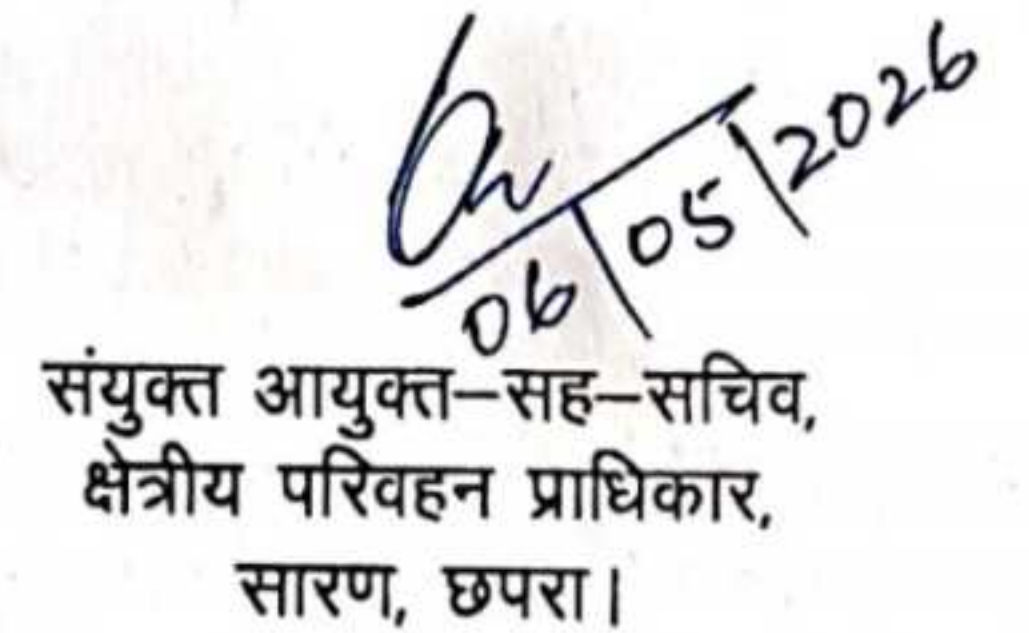 06/05/2026
संयुक्त आयुक्त–सह–सचिव,
क्षेत्रीय परिवहन प्राधिकार,
सारण, छपरा।